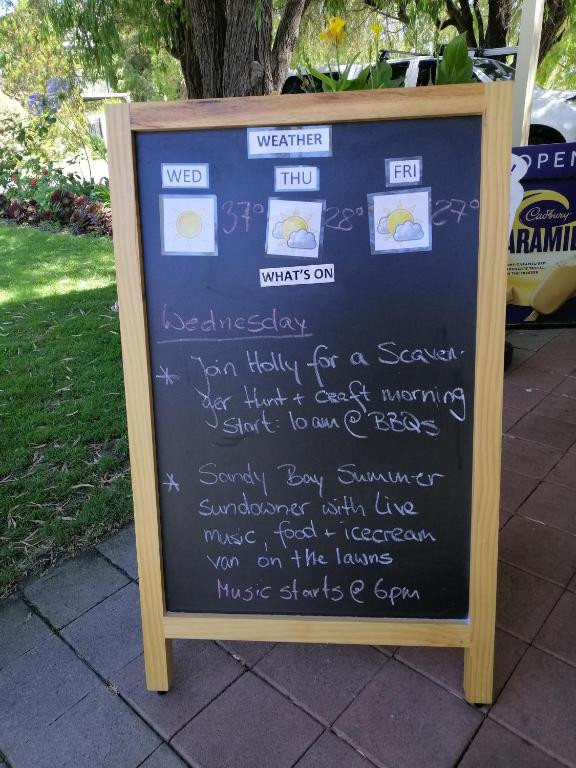 WEATHER
WED THU FRI
37° 28° 27°
WHAT'S ON
Wednesday
* Join Holly for a Scaven-
ger Hunt + craft morning
start: 10am @ BBQs
* Sandy Bay Summer
sundowner with Live
music, food + icecream
van on the lawns
Music starts @ 6pm
OPEN
Cadbury
ARAMI